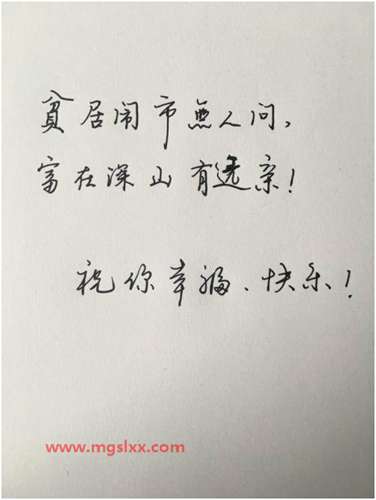 貧居闹市無人问,
富在深山有远亲!
祝你幸福、快乐!
www.mgslxx.com